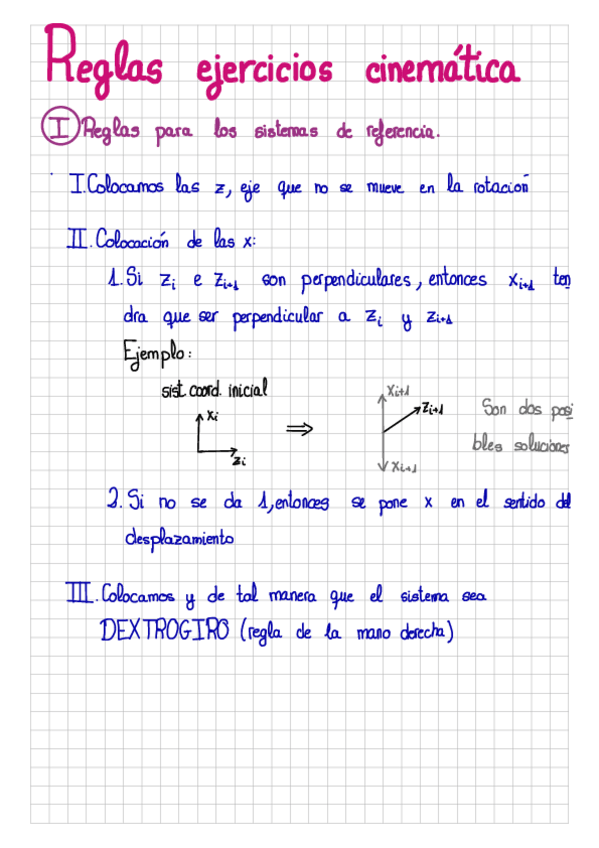 Reglas ejercicios cinemática
I Reglas para los sistemas de referencia.
I. Colocamos las z, eje que no se mueve en la rotación
II. Colocación de las x:
1. Si zᵢ e zᵢ₊₁ son perpendiculares, entonces xᵢ₊₁ ten
dra que ser perpendicular a zᵢ y zᵢ₊₁
Ejemplo:
sist. coord. inicial
xᵢ
zᵢ
⇒
xᵢ₊₁
zᵢ₊₁
xᵢ₊₁
Son dos posi
bles soluciones
2. Si no se da 1, entonces se pone x en el sentido del
desplazamiento
III. Colocamos y de tal manera que el sistema sea
DEXTROGIRO (regla de la mano derecha)